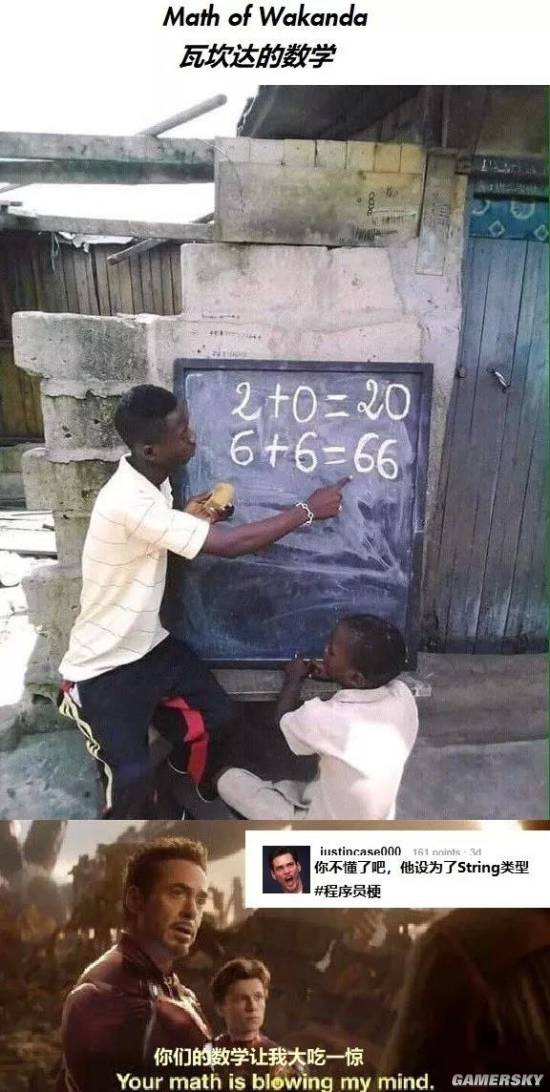 Math of Wakanda
瓦坎达的数学
2+0=20
6+6=66
justincase000 161 points · 3d
你不懂了吧，他设为了String类型
#程序员梗
你们的数学让我大吃一惊
Your math is blowing my mind.
GAMERSKY